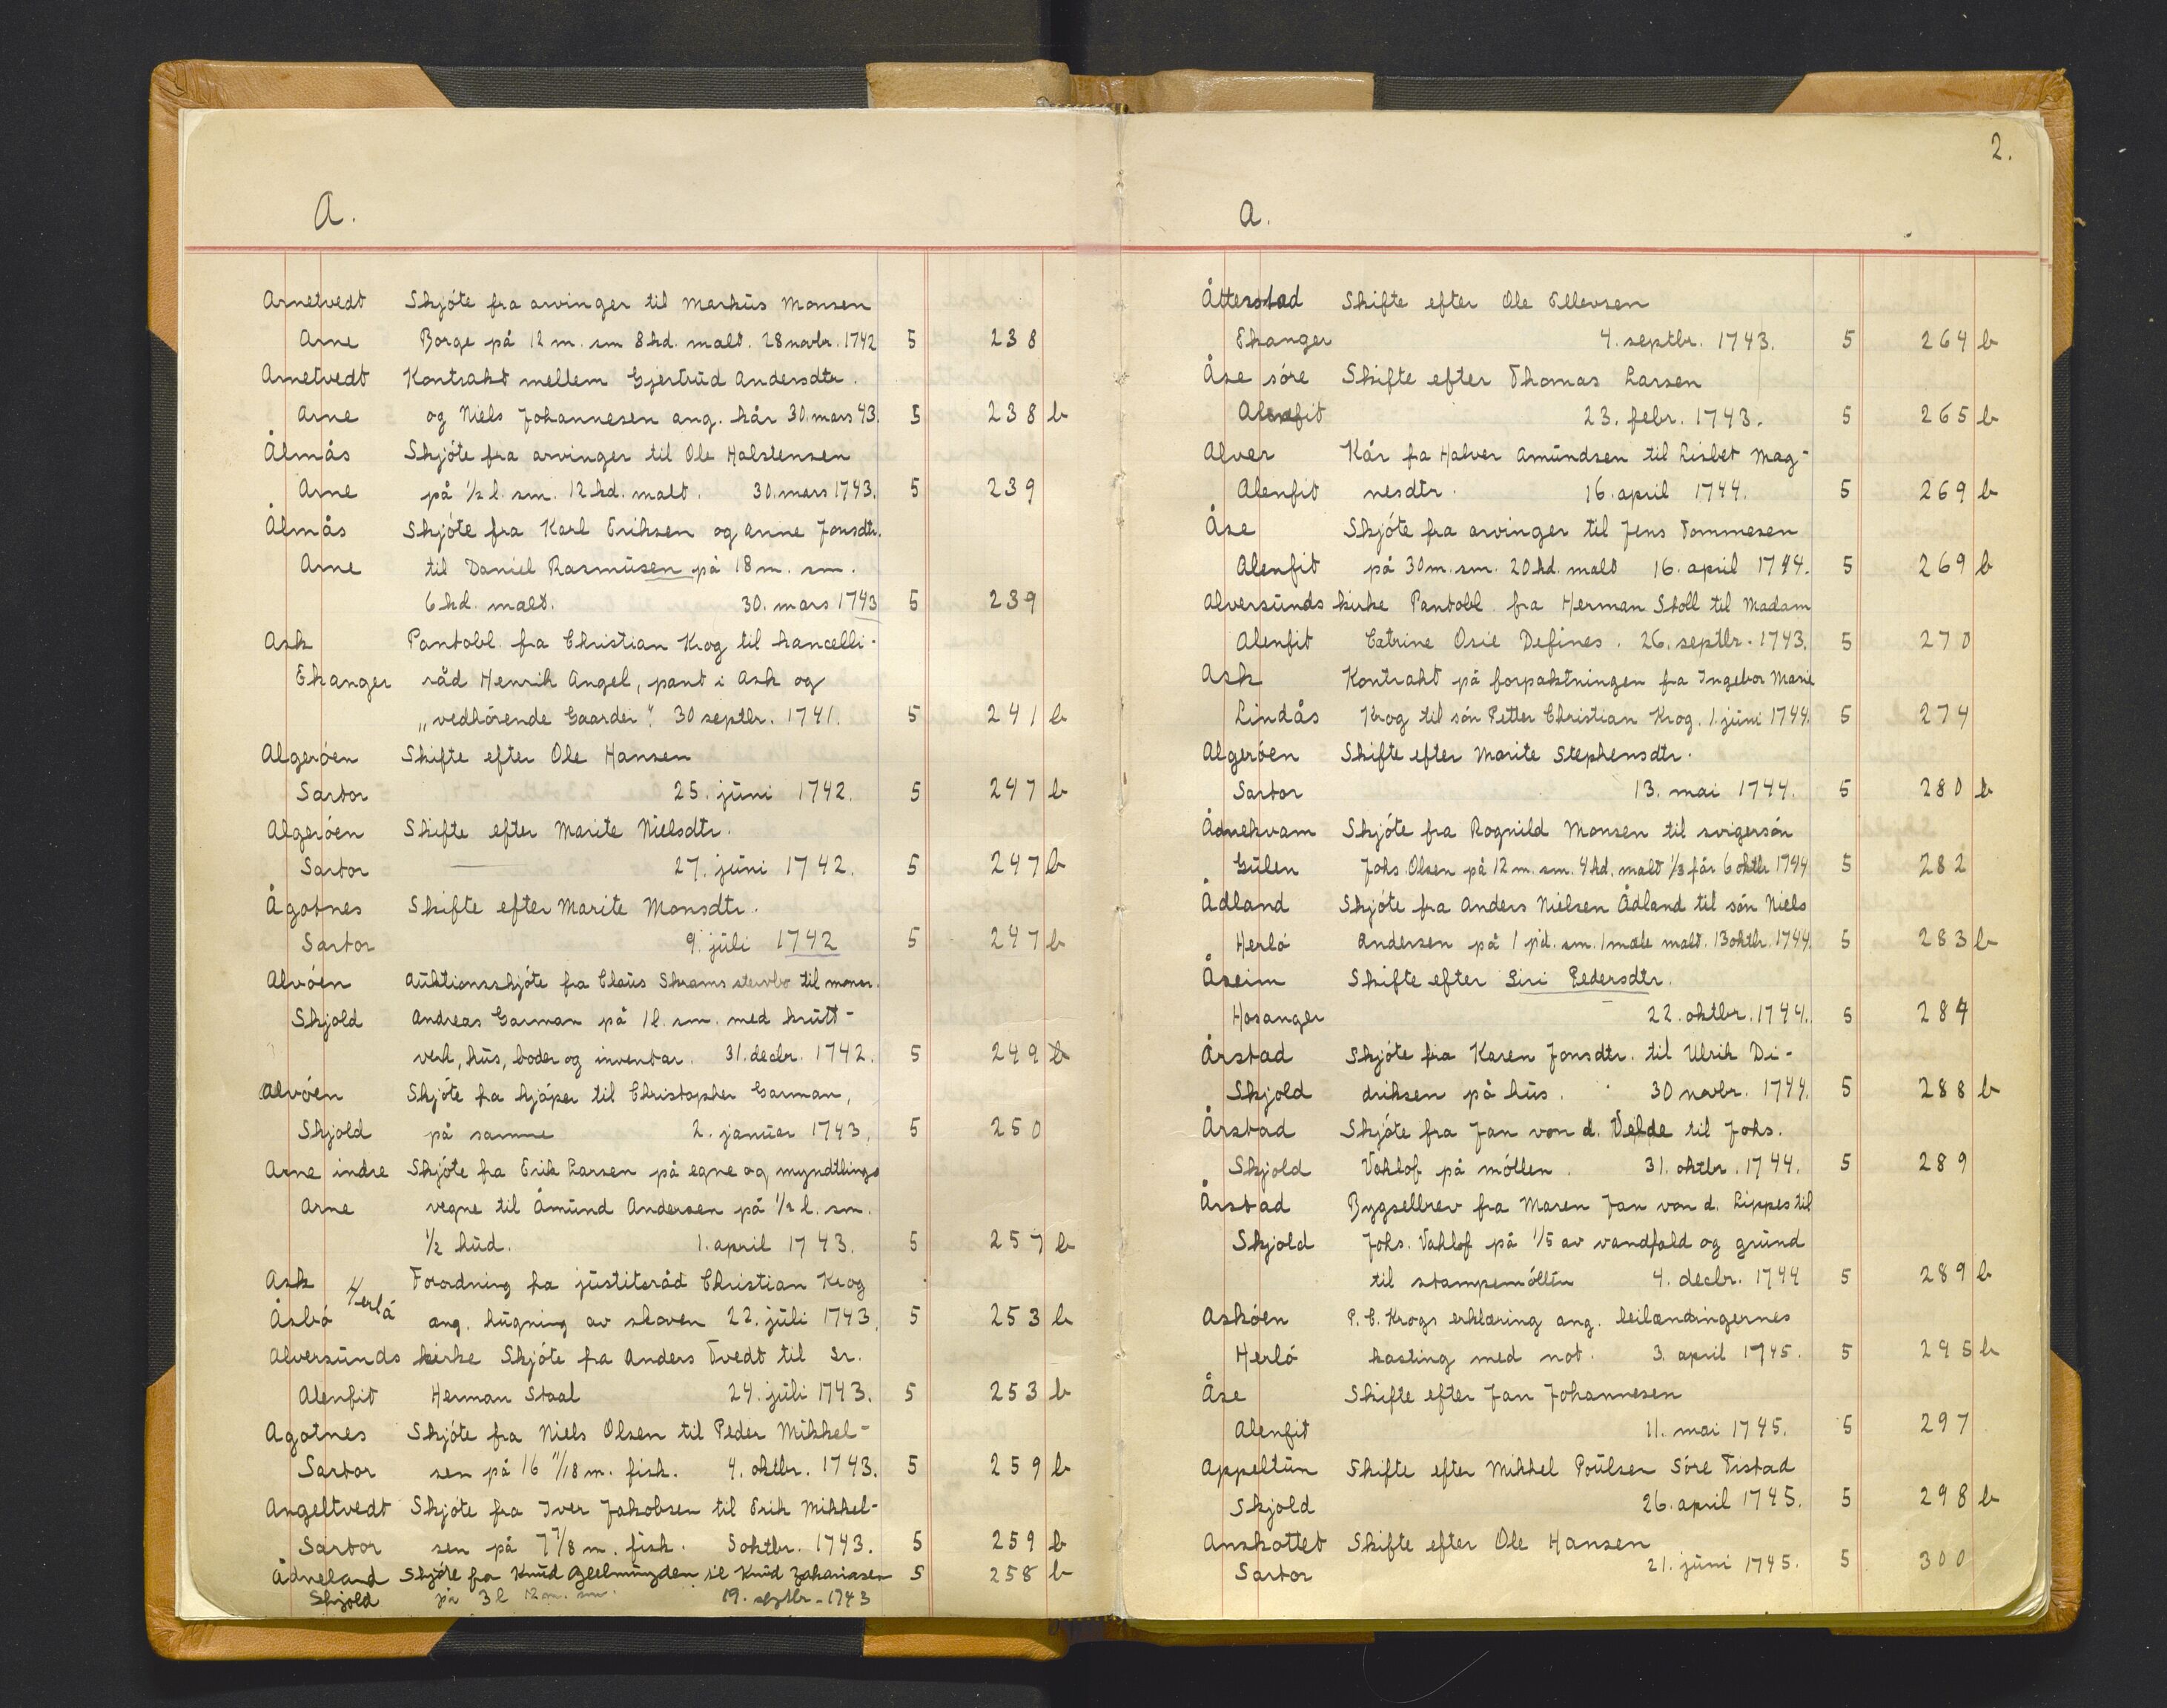 A.
Arnetvedt Skjóte fra arvinger til Markus Monsen
Arne Borge på 12 m. sm 8 hd. malt. 28 novbr. 1742 5 238
Arnetvedt Kontrakt mellem Gjertrud Andersdtr.
Arne og Niels Johannesen ang. kår 30. mars 43. 5 238 b
Ålmås Skjóte fra arvinger til Ole Halstensen
Arne på 1/2 l. sm. 12 hd. malt. 30. mars 1743. 5 239
Ålmås Skjóte fra Karl Eriksen og Anne Jonsdtr.
Arne til Daniel Rasmusen på 18 m. sm.
6 hd. malt. 30. mars 1743 5 239
Ask Pantobl. fra Christian Krog til kancelli-
Ekanger råd Henrik Angel, pant i Ask og
„vedhörende Gaarder“. 30 septbr. 1741. 5 241 b
Algeróen Skifte efter Ole Hansen
Sartor 25. juni 1742. 5 247 b
Algeróen Skifte efter Marite Nielsdtr.
Sartor 27. juni 1742. 5 247 b
Ågotnes Skifte efter Marite Monsdtr.
Sartor 9. juli 1742 5 247 b
Alvóen Auktionsskjóte fra Claus Skrams stervbo til monsr.
Skjold Andreas Garman på 1 l. sm. med krutt-
verk, hus, boder og inventar. 31. decbr. 1742. 5 249 b
Alvóen Skjóte fra kjóper til Christopher Garman,
Skjold på samme 2. januar 1743. 5 250
Arne indre Skjóte fra Erik Larsen på egne og myndtlings
Arne vegne til Åmund Andersen på 1/2 l. sm.
1/2 hud. 1. april 1743. 5 257 b
Ask Forordning fra justitsråd Christian Krog
Åsbó Herló ang. hugning av skoven 22. juli 1743. 5 253 b
Alversunds kirke Skjóte fra Anders Tvedt til Sr.
Alenfit Herman Staal 24. juli 1743. 5 253 b
Agotnes Skjóte fra Niels Olsen til Peder Mikkel-
Sartor sen på 16 11/18 m. fisk. 4. oktbr. 1743. 5 259 b
Angeltvedt Skjóte fra Iver Jakobsen til Erik Mikkel-
Sartor sen på 7 7/8 m. fisk. 5 oktbr. 1743. 5 259 b
Ådneland Skjóte fra Knud Geelmuyden til Knud Zakariasen 5 258 b
Skjold på 3 l 12 m. sm. 19. septbr. 1743
2.
A.
Åtterstad Skifte efter Ole Ellevsen
Ekanger 4. septbr. 1743. 5 264 b
Åse sóre Skifte efter Thomas Larsen
Alenfit 23. febr. 1743. 5 265 b
Alver Kår fra Halver Amundsen til Lisbet Mag-
Alenfit nesdtr. 16. april 1744. 5 269 b
Åse Skjóte fra arvinger til Jens Tommesen
Alenfit på 30 m. sm. 20 hd. malt 16. april 1744. 5 269 b
Alversunds kirke Pantobl. fra Herman Stoll til Madam
Alenfit Catrine Osie Defines. 26. septbr. 1743. 5 270
Ask Kontrakt på forpaktningen fra Ingebor Marie
Lindås Krog til són Petter Christian Krog. 1. juni 1744. 5 274
Algeróen Skifte efter Marite Stephensdtr.
Sartor 13. mai 1744. 5 280 b
Ådnekvam Skjóte fra Rognild Monsen til svigersón
Gulen Johs. Olsen på 12 m. sm. 4 hd. malt 1/3 får 6 oktbr 1744 5 282
Ådland Skjóte fra Anders Nielsen Ådland til són Niels
Herló Andersen på 1 pd. sm. 1 mæle malt. 13 oktbr. 1744. 5 283 b
Åseim Skifte efter Siri Pedersdtr.
Hosanger 22. oktbr. 1744. 5 284
Årstad Skjóte fra Karen Jonsdtr. til Ulrik Di-
Skjold driksen på hus. 30 novbr. 1744. 5 288 b
Årstad Skjóte fra Jan von d. Velde til Johs.
Skjold Vahlof på móllen. 31. oktbr. 1744. 5 289
Årstad Bygselbrev fra Maren Jan von d. Lippes til
Skjold Johs. Vahlof på 1/5 av vandfald og grund
til stampemóllen 4. decbr. 1744 5 289 b
Askóen P. C. Krogs erklæring ang. leilændingernes
Herló kasting med not. 3. april 1745. 5 295 b
Åse Skifte efter Jan Johannesen
Alenfit 11. mai 1745. 5 297
Appeltun Skifte efter Mikkel Poulsen Sóre Tistad
Skjold 26. april 1745. 5 298 b
Anskottet Skifte efter Ole Hansen
Sartor 21. juni 1745. 5 300